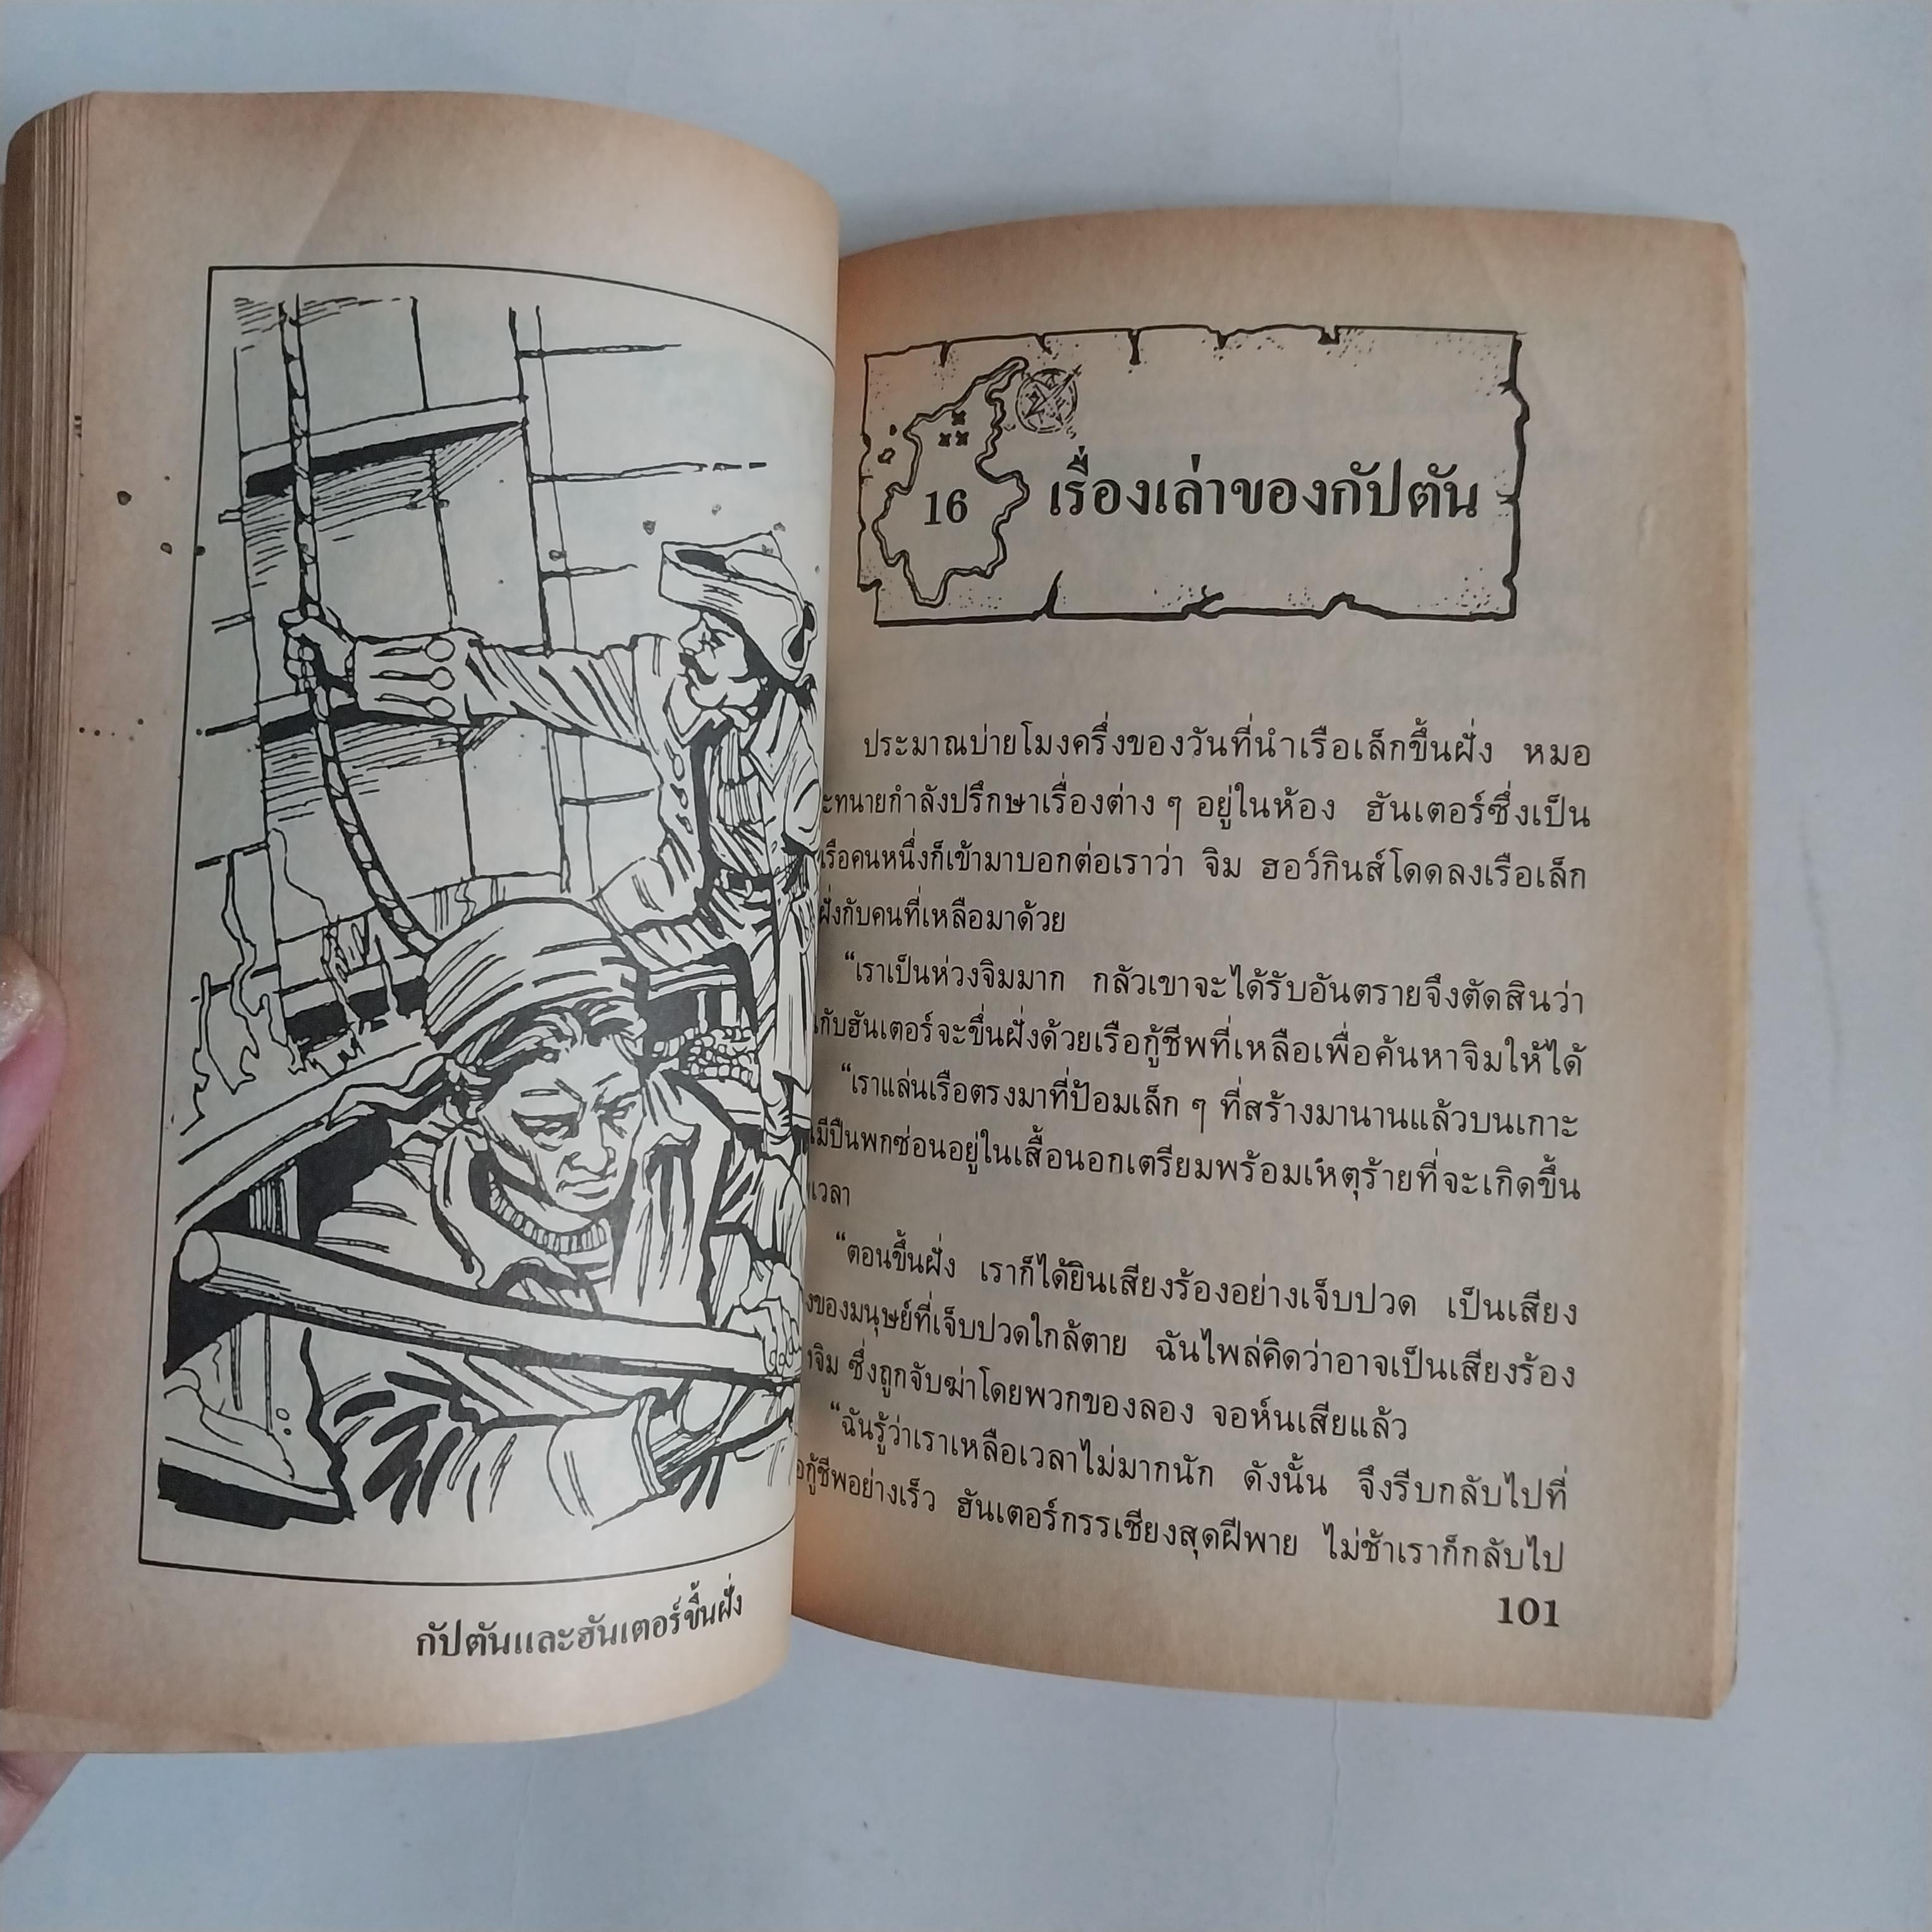 กัปตันและฮันเตอร์ขึ้นฝั่ง
16
เรื่องเล่าของกัปตัน
ประมาณบ่ายโมงครึ่งของวันที่นำเรือเล็กขึ้นฝั่ง หมอ
ทนายกำลังปรึกษาเรื่องต่าง ๆ อยู่ในห้อง ฮันเตอร์ซึ่งเป็น
เรือคนหนึ่งก็เข้ามาบอกต่อเราว่า จิม ฮอว์กินส์โดดลงเรือเล็ก
ฝั่งกับคนที่เหลือมาด้วย
“เราเป็นห่วงจิมมาก กลัวเขาจะได้รับอันตรายจึงตัดสินว่า
กับฮันเตอร์จะขึ่นฝั่งด้วยเรือกู้ชีพที่เหลือเพื่อค้นหาจิมให้ได้
“เราแล่นเรือตรงมาที่ป้อมเล็ก ๆ ที่สร้างมานานแล้วบนเกาะ
มีปืนพกซ่อนอยู่ในเสื้อนอกเตรียมพร้อมเหตุร้ายที่จะเกิดขึ้น
เวลา
“ตอนขึ้นฝั่ง เราก็ได้ยินเสียงร้องอย่างเจ็บปวด เป็นเสียง
ของมนุษย์ที่เจ็บปวดใกล้ตาย ฉันไพล่คิดว่าอาจเป็นเสียงร้อง
จิม ซึ่งถูกจับฆ่าโดยพวกของลอง จอห์นเสียแล้ว
“ฉันรู้ว่าเราเหลือเวลาไม่มากนัก ดังนั้น จึงรีบกลับไปที่
กู้ชีพอย่างเร็ว ฮันเตอร์กรรเชียงสุดฝีพาย ไม่ช้าเราก็กลับไป
101